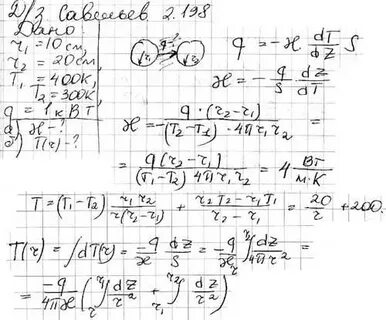 Д/з Савельев 2.198
Дано
r₁ = 10 см,
r₂ = 20 см,
T₁ = 400К,
T₂ = 300К,
q = 1 кВт
а) ϰ - ?
б) T(r) - ?
q = -ϰ dT/dz S
ϰ = -q/S dz/dT
ϰ = q·(r₂-r₁) / -(T₂-T₁)·4πr₁r₂ =
= q(r₂-r₁) / (T₁-T₂)4πr₁r₂ = 4 Вт/м·К
T = (T₁-T₂) r₁r₂ / r(r₂-r₁) + r₂T₂-r₁T₁ / r₂-r₁ = 20/r + 200.
T(r) = ∫dT(r) = -q/ϰ dz/S = -q/ϰ ∫ dz/4πr² =
= -q/4πϰ (∫ dz/r² + ∫ dz/r²)